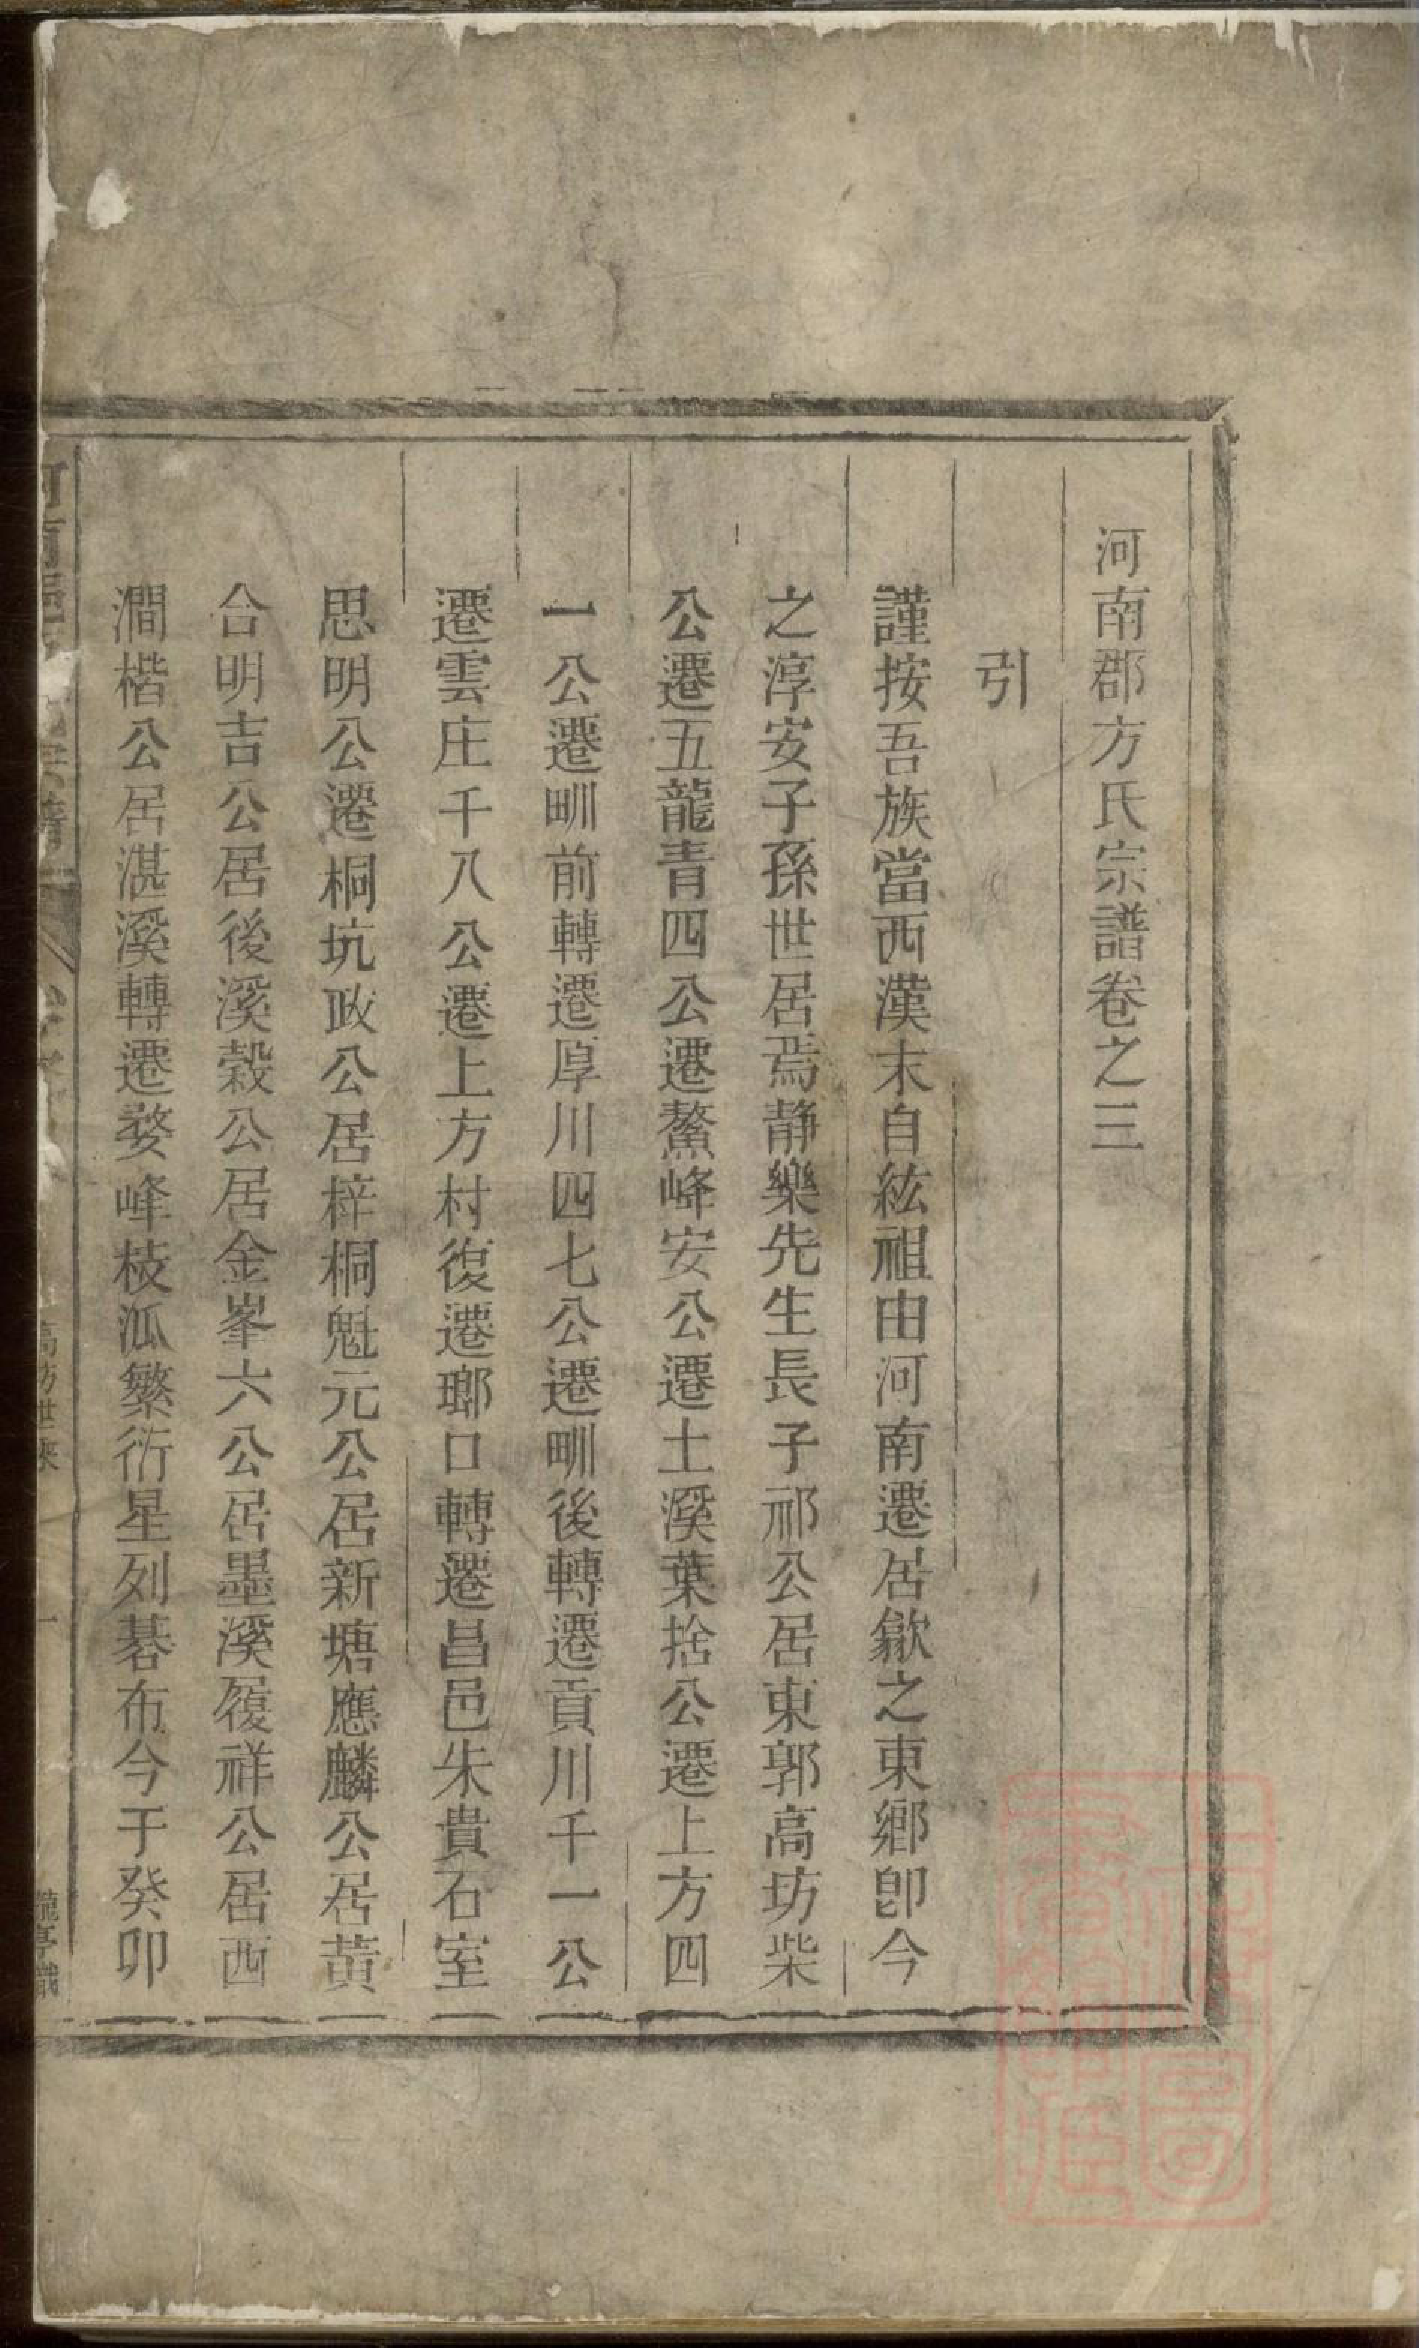 河南郡方氏宗譜卷之三
引
謹按吾族當西漢末自紘祖由河南遷居歙之東鄉卽今
之淳安子孫世居焉静樂先生長子祁公居東郭高坊柴
公遷五龍青四公遷鰲峰安公遷土溪葉捨公遷上方四
一公遷甽前轉遷厚川四七公遷甽後轉遷貢川千一公
遷雲庄千八公遷上方村復遷瑯口轉遷昌邑朱貴石室
思明公遷桐坑政公居梓桐魁元公居新塘應麟公居黃
合明吉公居後溪穀公居金峯六公居墨溪履祥公居西
澗楷公居湛溪轉遷婺峰枝瓜繁衍星列碁布今于癸卯
高坊世系
一